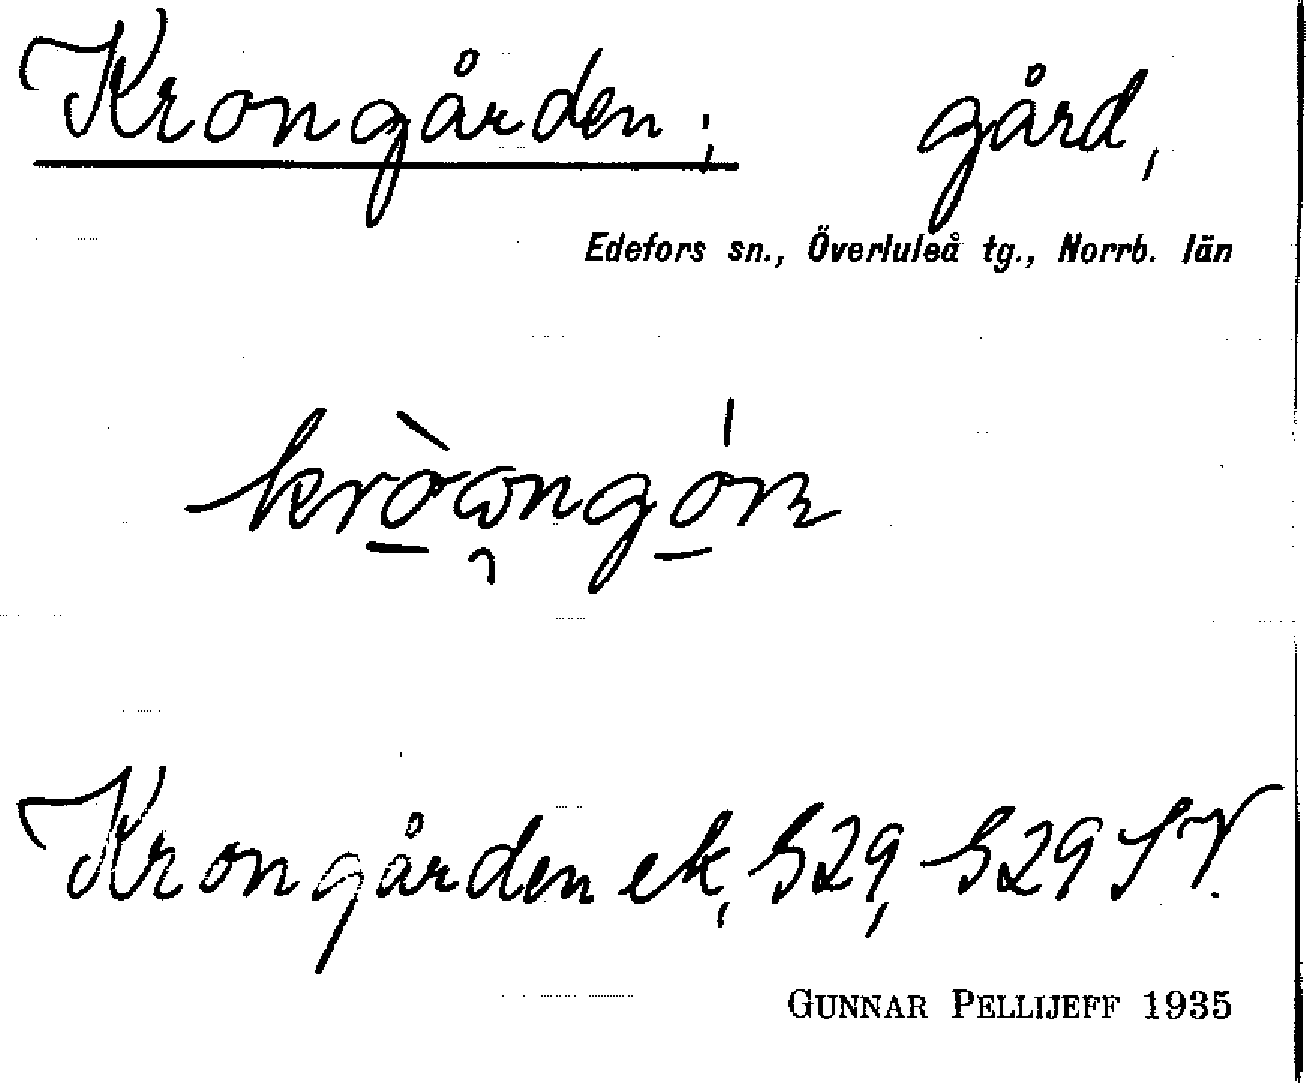 Krongården; gård,
Edefors sn., Överluleå tg., Norrb. län
Krongården ek, S29, S29 SV.
GUNNAR PELLIJEFF 1935